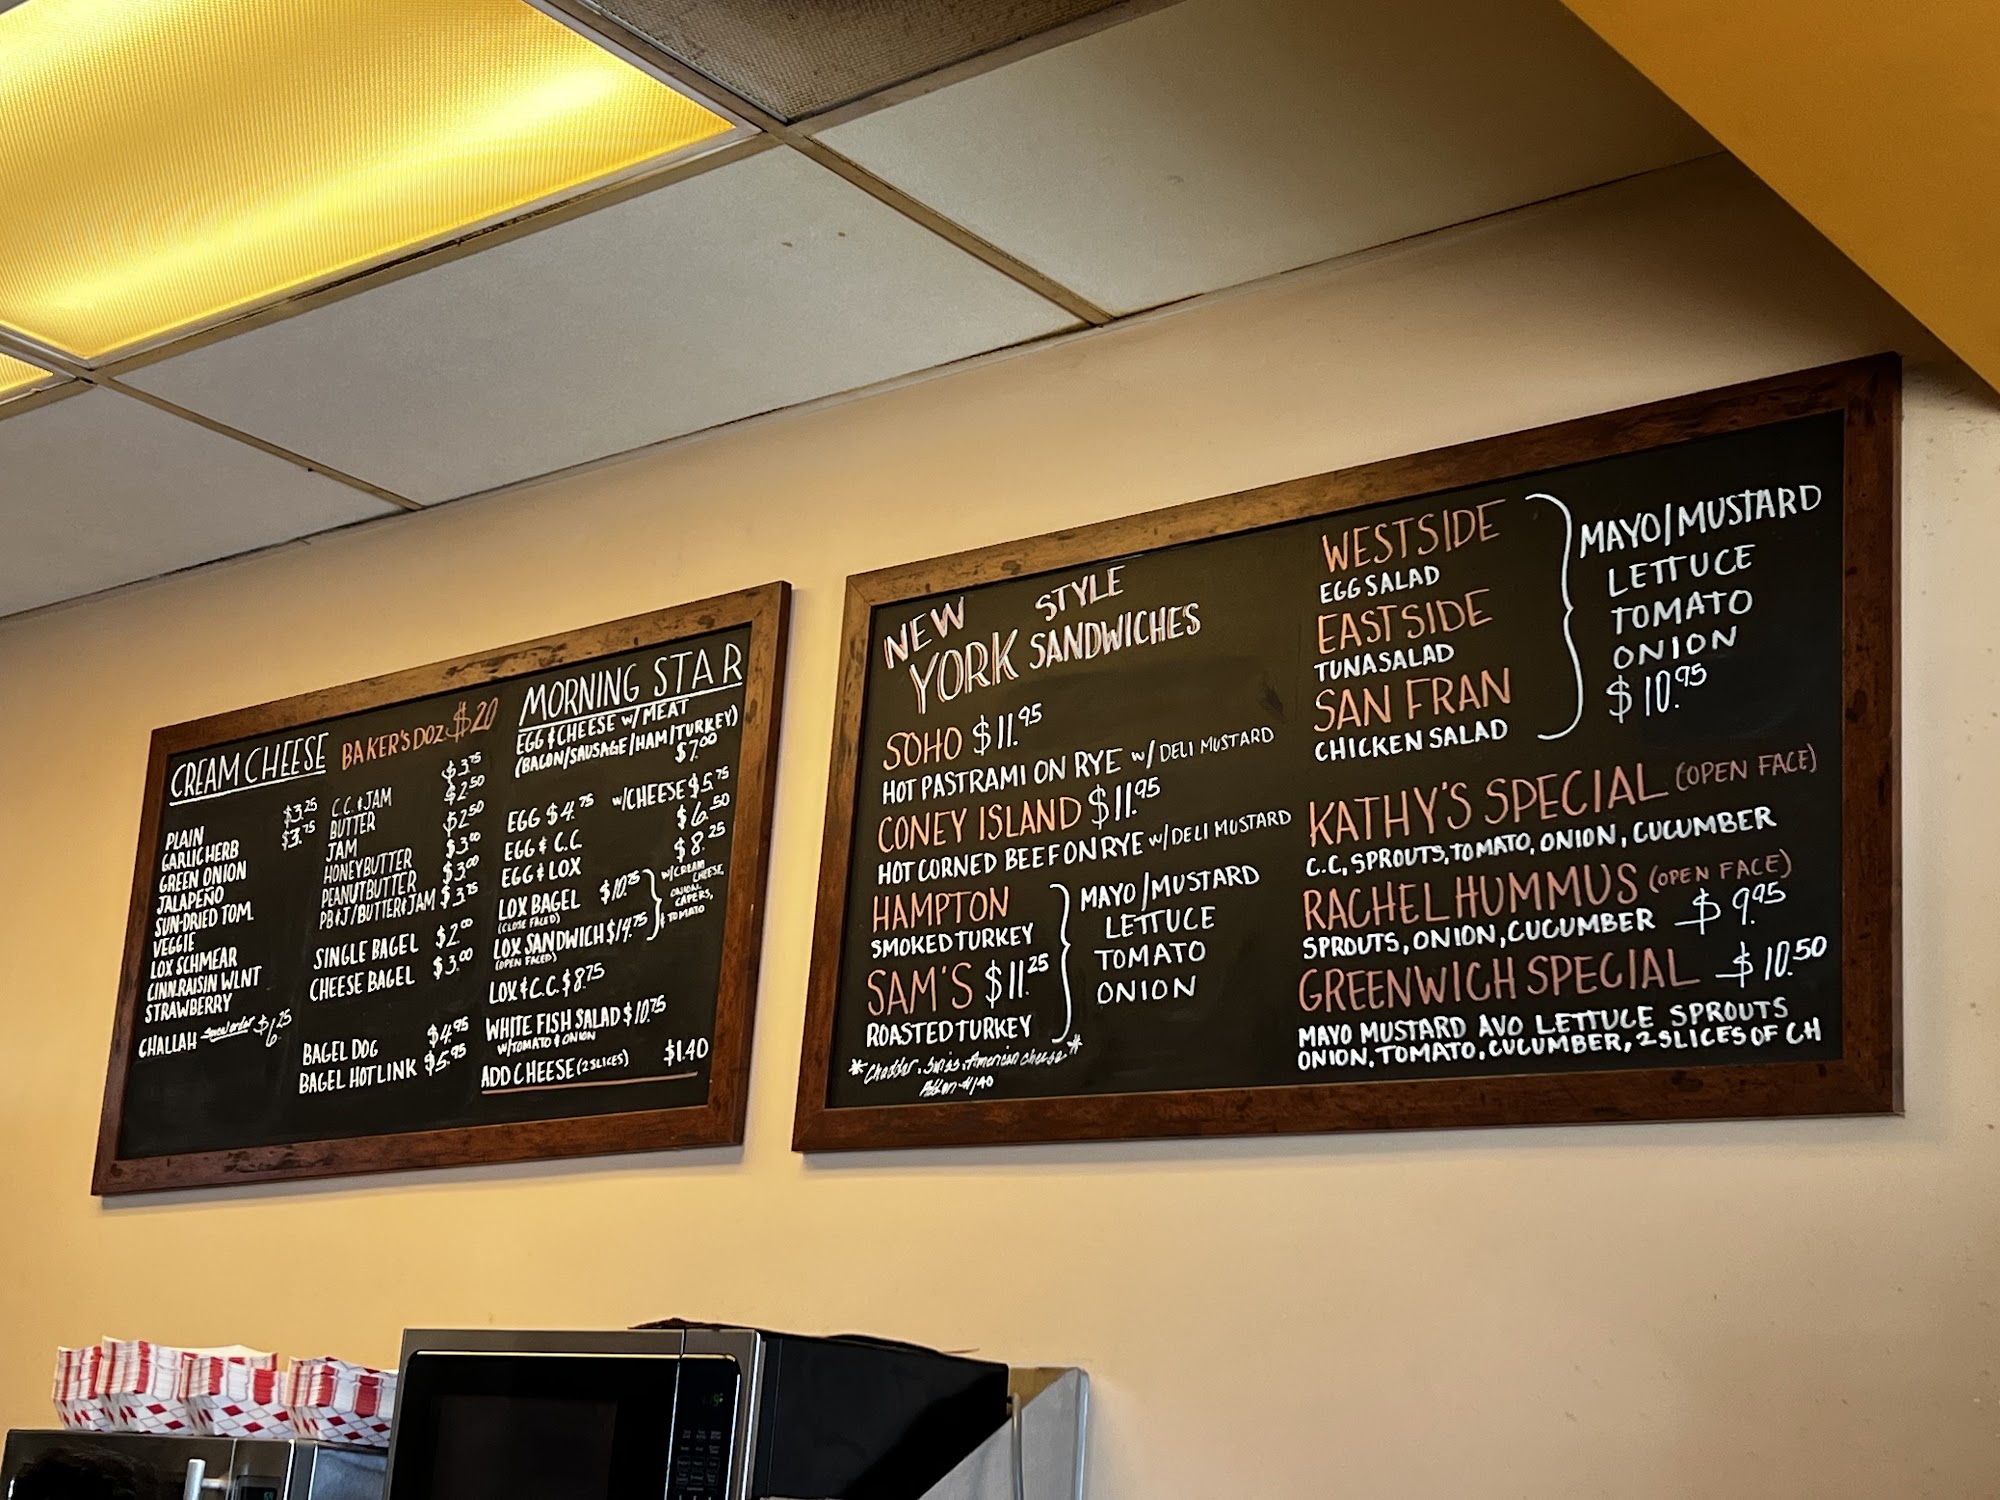 CREAM CHEESE
PLAIN $3.25
GARLIC HERB $3.75
GREEN ONION
JALAPEÑO
SUN-DRIED TOM.
VEGGIE
LOX SCHMEAR
CINN.RAISIN WLNT
STRAWBERRY
CHALLAH special order $6.25
BAKER'S DOZ $20
C.C. & JAM $3.75
BUTTER $2.50
JAM $2.50
HONEYBUTTER $3.00
PEANUTBUTTER $3.00
PB&J/BUTTER&JAM $3.75
SINGLE BAGEL $2.00
CHEESE BAGEL $3.00
BAGEL DOG $4.95
BAGEL HOTLINK $5.95
MORNING STAR
EGG & CHEESE W/ MEAT
(BACON/SAUSAGE/HAM/TURKEY)
$7.00
EGG $4.75 W/CHEESE $5.75
EGG & C.C. $6.50
EGG & LOX $8.25
LOX BAGEL $10.75
(CLOSE FACED)
LOX SANDWICH $14.75
(OPEN FACED)
W/CREAM
CHEESE,
ONION,
CAPERS,
& TOMATO
LOX & C.C. $8.75
WHITE FISH SALAD $10.75
W/TOMATO & ONION
ADD CHEESE (2 SLICES) $1.40
NEW YORK STYLE SANDWICHES
SOHO $11.95
HOT PASTRAMI ON RYE W/ DELI MUSTARD
CONEY ISLAND $11.95
HOT CORNED BEEF ON RYE W/ DELI MUSTARD
HAMPTON
SMOKED TURKEY
SAM'S $11.25
ROASTED TURKEY
MAYO/MUSTARD
LETTUCE
TOMATO
ONION
*Cheddar, Swiss, American cheese*
Add on $1.40
WESTSIDE
EGG SALAD
EASTSIDE
TUNA SALAD
SAN FRAN
CHICKEN SALAD
MAYO/MUSTARD
LETTUCE
TOMATO
ONION
$10.95
KATHY'S SPECIAL (OPEN FACE)
C.C, SPROUTS, TOMATO, ONION, CUCUMBER
RACHEL HUMMUS (OPEN FACE)
SPROUTS, ONION, CUCUMBER $9.95
GREENWICH SPECIAL $10.50
MAYO MUSTARD AVO LETTUCE SPROUTS
ONION, TOMATO, CUCUMBER, 2 SLICES OF CH